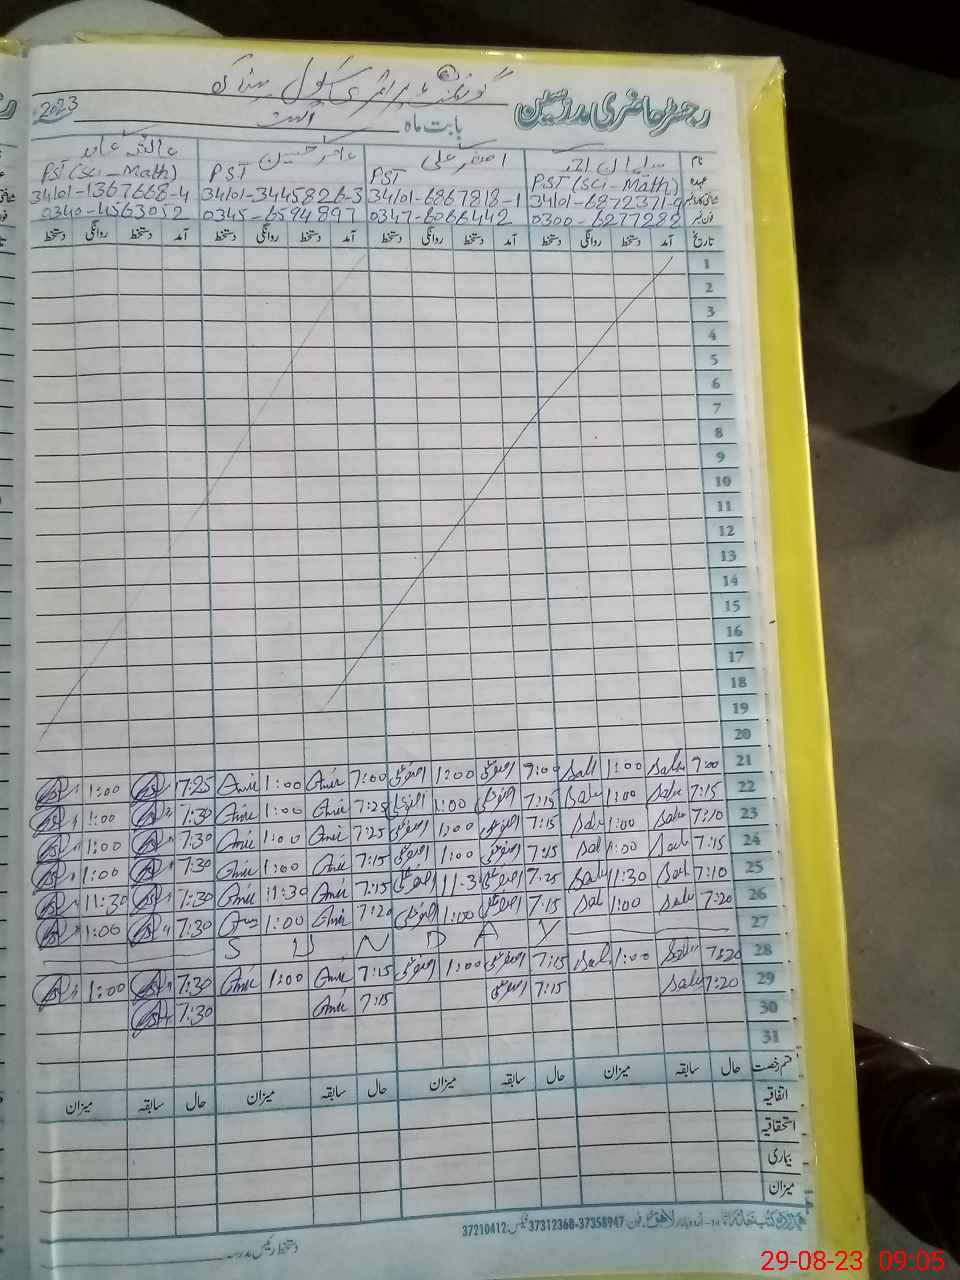 گورنمنٹ پرائمری سکول
رجسٹر حاضری مدرسین
بابت ماہ اگست 2023
نام سلمان احمد اصغر علی عامر حسین عائشہ عابد
عہدہ PST (Sci - Math) PST PST PST (Sci - Math)
34101-6872371-9 34101-6867818-1 34101-3445826-3 34101-1367668-4
فون نمبر 0300-6277288 0347-6066442 0345-6594897 0340-4563052
تاریخ آمد دستخط روانگی دستخط آمد دستخط روانگی دستخط آمد دستخط روانگی دستخط آمد دستخط روانگی دستخط
1
2
3
4
5
6
7
8
9
10
11
12
13
14
15
16
17
18
19
20
21 7:00 1:00 7:00 اصغر علی 1:00 اصغر علی 7:00 Amir 1:00 Amir 7:25 1:00
22 7:15 1:00 7:15 اصغر علی 1:00 اصغر علی 7:25 Amir 1:00 Amir 7:30 1:00
23 7:10 1:00 7:15 اصغر علی 1:00 اصغر علی 7:25 Amir 1:00 Amir 7:30 1:00
24 7:15 1:00 7:15 اصغر علی 1:00 اصغر علی 7:15 Amir 1:00 Amir 7:30 1:00
25 7:10 11:30 7:25 اصغر علی 11-3 اصغر علی 7:15 Amir 11:30 Amir 7:30 11:30
26 7:20 1:00 7:15 اصغر علی 1:00 اصغر علی 7:20 Amir 1:00 7:30 1:00
27 SUNDAY
28 7:20 1:00 7:15 اصغر علی 1:00 اصغر علی 7:15 Amir 1:00 Amir 7:30 1:00
29 7:20 7:15 اصغر علی 7:15 Amir 7:30
30
31
قسم رخصت حال سابقہ میزان حال سابقہ میزان حال سابقہ میزان حال سابقہ میزان
اتفاقیہ
استحقاقیہ
بیماری
میزان
اردو بازار لاہور فون 37358947-37312360 فیکس: 37210412
دستخط رئیس مدرسہ
29-08-23 09:05